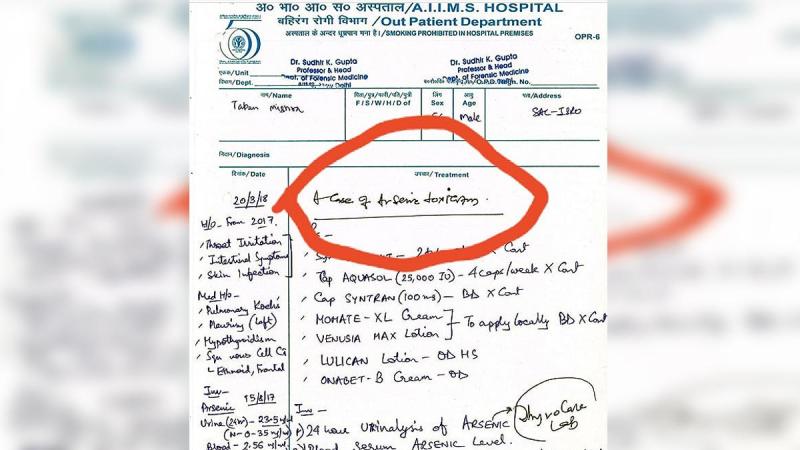 अ० भा० आ० स० अस्पताल/A.I.I.M.S. HOSPITAL
बहिरंग रोगी विभाग /Out Patient Department
अस्पताल के अन्दर धूम्रपान मना है।/SMOKING PROHIBITED IN HOSPITAL PREMISES
OPR-6
Dr. Sudhir K. Gupta
Professor & Head
Dept. of Forensic Medicine
Delhi
Dr. Sudhir K. Gupta
Professor & Head
Dept. of Forensic Medicine
एकक/Unit
विभाग/Dept.
नाम/Name
पिता/पुत्र/पत्नी/पति/पुत्री
F/S/W/H/D of
लिंग
Sex
आयु
Age
पता/Address
Tapan Mishra
Male
SAC-ISRO
निदान/Diagnosis
दिनांक/Date
उपचार/Treatment
20/3/18
A Case of Arsenic toxicam.
H/O- From 2017.
Throat Irritation
Intestinal Symptoms
Skin Infection
Cont
Cap AQUASOL (25,000 IU) - 4 caps/week X Cont
Cap SYNTRAN (100mg) - BD X Cont
MOMATE-XL Cream
VENUSIA MAX Lotion
To apply locally BD X Cont
LULICAN Lotion - OD HS
ONABET-B Cream - OD
Med H/o-
Pulmonary Kochs
(Left)
Hypothyroidism
Squ vous Cell Ca
Ethnoid, Frontal
Inv-
Arsenic 15/8/17
Urine (24hr) - 23.5
(N-0-35
Blood - 2.56
Inv -
24 hour Urinalysis of ARSENIC
Blood Serum ARSENIC Level.
ThyroCare
Lab